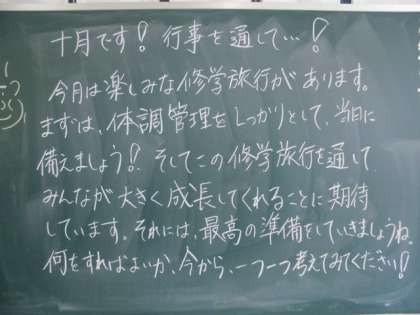 十月です！行事を通して…！
今月は楽しみな修学旅行があります。
まずは、体調管理をしっかりとして、当日に
備えましょう！そしてこの修学旅行を通して
みんなが大きく成長してくれることに期待
しています。それには、最高の準備をしていきましょうね
何をすればよいか、今から、一つ一つ考えてみてください！